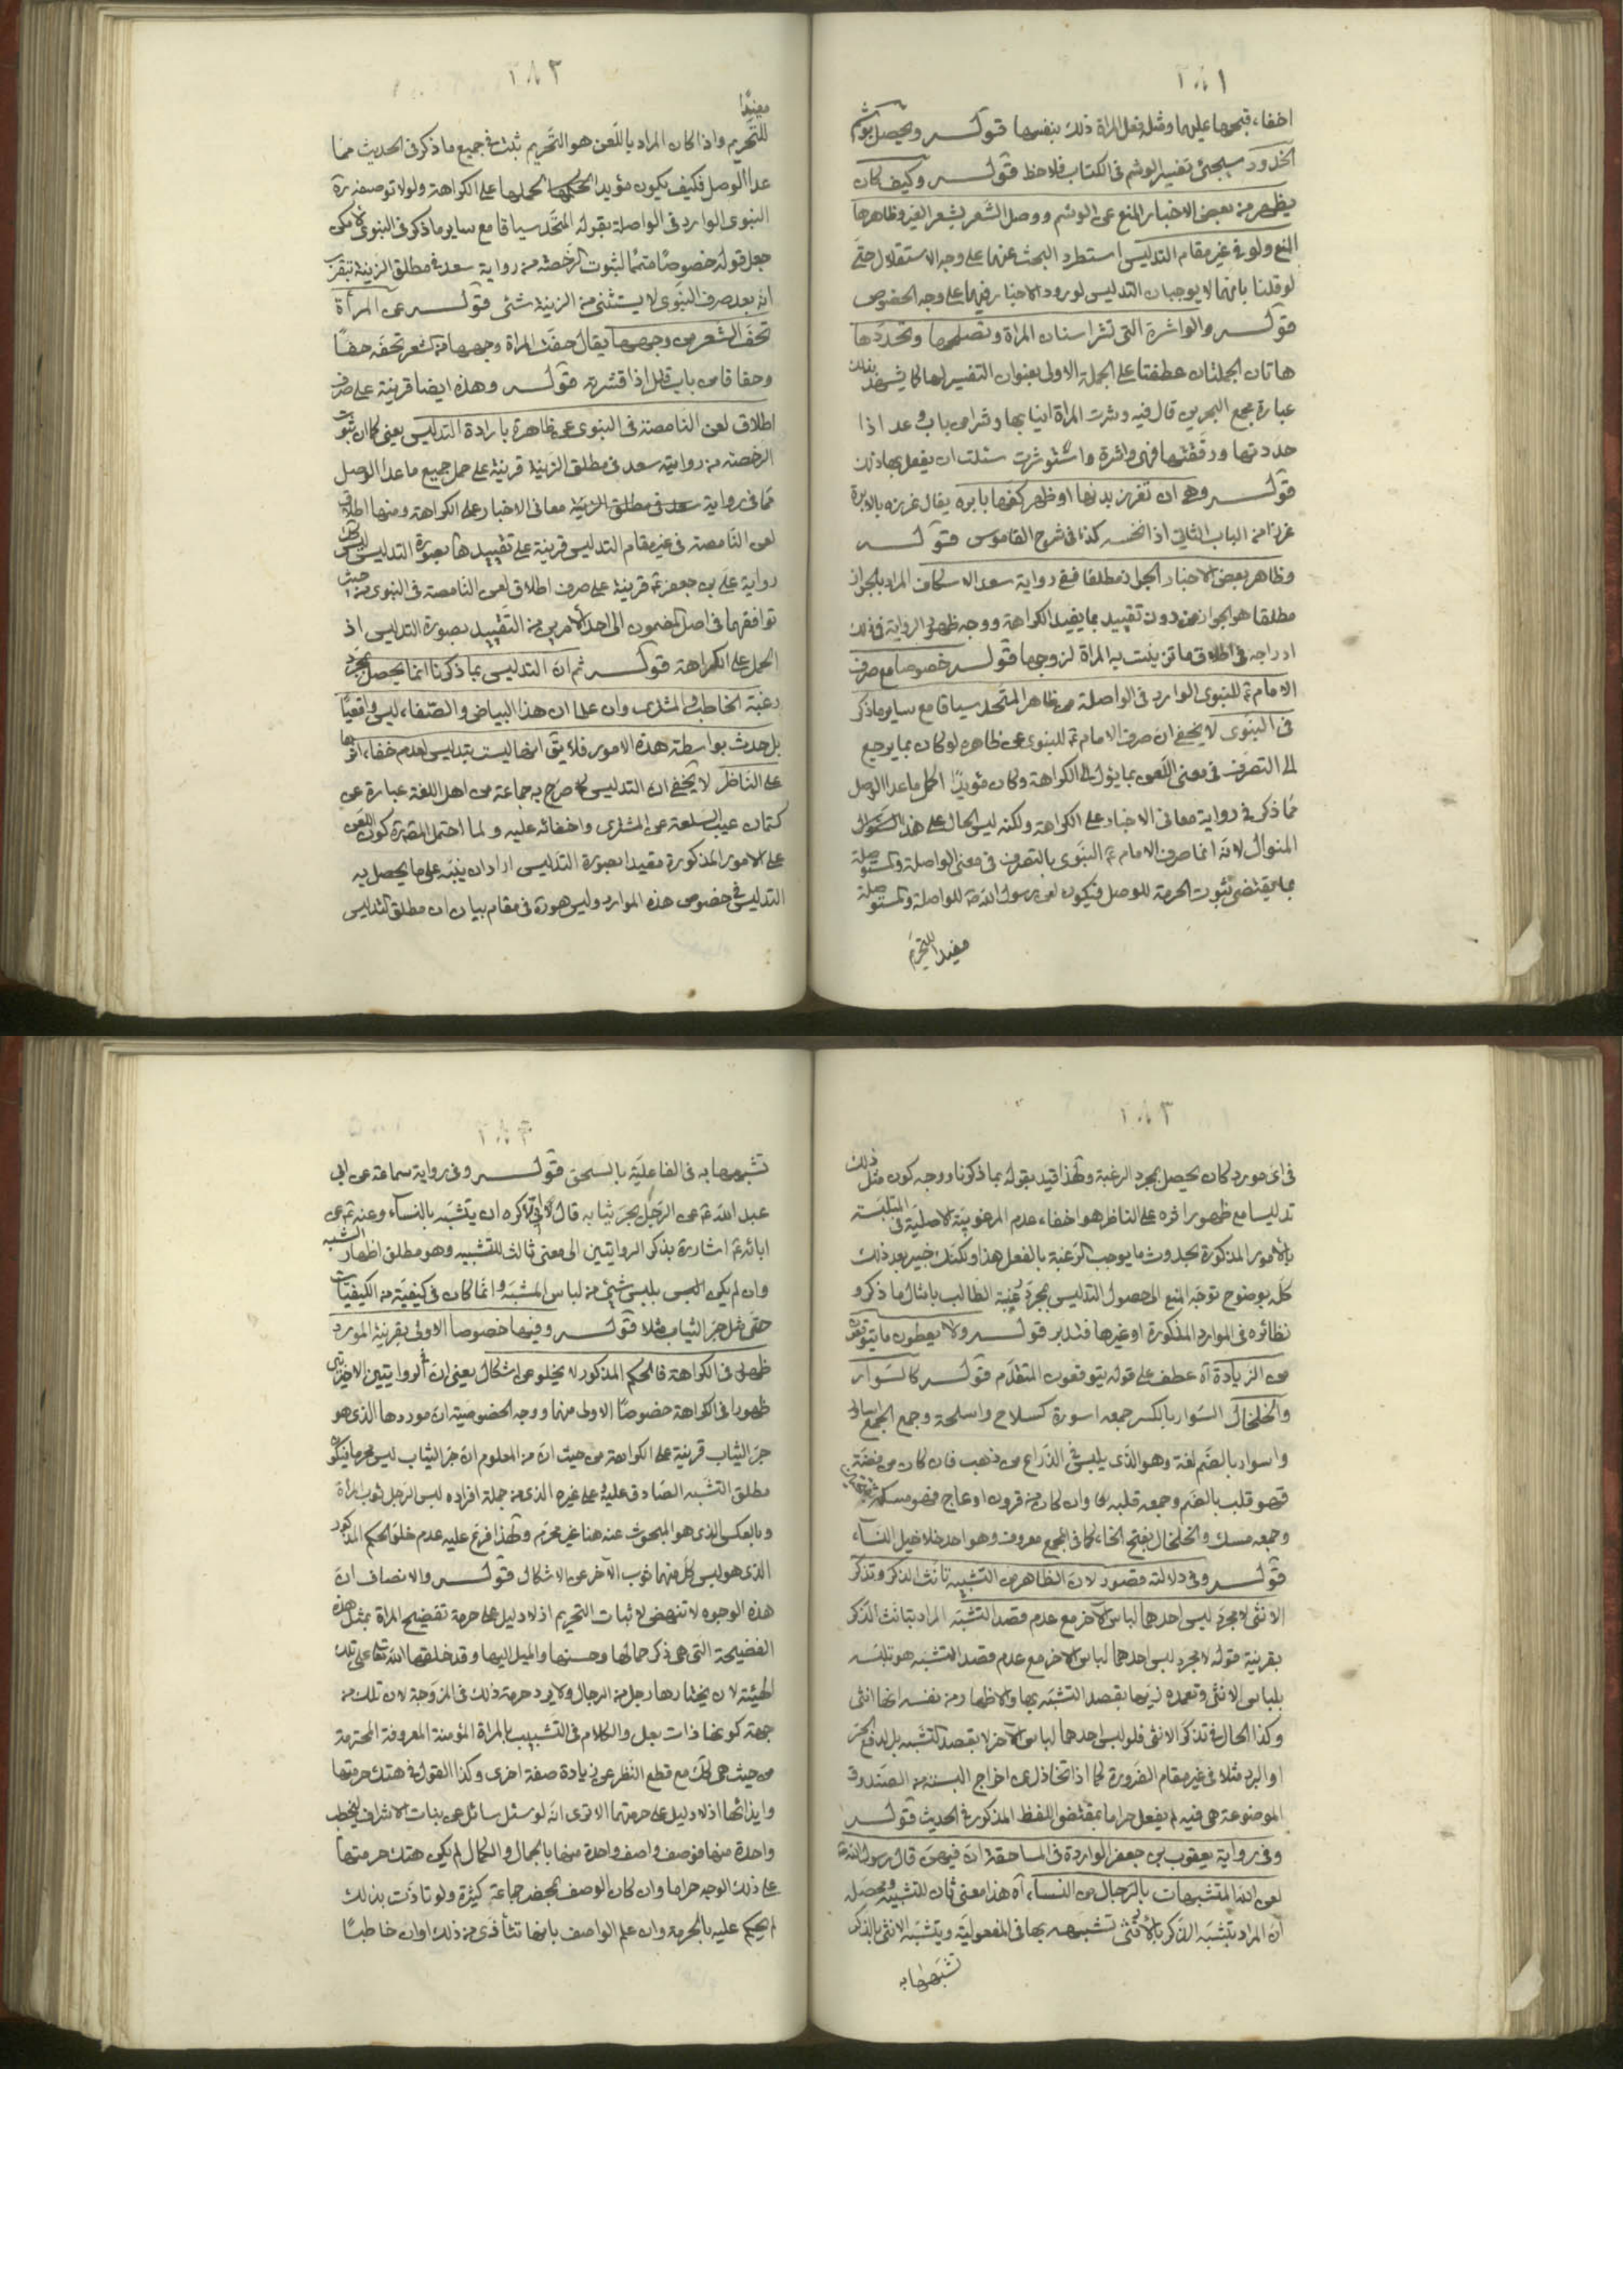 ١٨١
اخفاء قبحها عليها ومثل فعل المراة ذلك بنفسها قوله ويحصل بوشم
الخدود سيجئ تفسير الوشم فى الكتاب فلاحظ قوله وكيف كان
يظهر من بعض الاخبار المنع عن الوشم ووصل الشعر بشعر الغير وظاهرها
المنع ولو فى غير مقام التدليس استطرد البحث عنهما على وجه الاستقلال حتى
لو قلنا بانهما لا يوجبان التدليس لورود الاخبار فيهما على وجه الخصوص
قوله والواشرة التى تشر اسنان المراة وتصلحها وتحددها
هاتان الجملتان عطفتا على الجملة الاولى بعنوان التفسير لها كما يشهد بذلك
عبارة مجمع البحرين قال فيه وشرت المراة انيابها وشرا من باب وعد اذا
حددتها ورققتها فهى واشرة واستوشرت سئلت ان يفعل بها ذلك
قوله وهى ان تغرز بدنها او ظهر كفها بابره يقال غرزه بالابرة
غرزا من الباب الثانى اذا نخسه كذا فى شرح القاموس قوله
وظاهر بعض الاخبار الجواز مطلقا ففى رواية سعد الاسكاف المراد بالجواز
مطلقا هو الجواز من دون تقييد بما يفيد الكراهة ووجه ظهور الرواية فى ذلك
ادراجه فى اطلاق ما تزينت به المراة لزوجها قوله خصوصا مع صرف
الامام ع للنبوى الوارد فى الواصلة عن ظاهر المتحد سياقا مع ساير ما ذكر
فى النبوى لا يخفى ان صرف الامام ع للنبوى عن ظاهره لو كان بما يرجع
الى التصرف فى معنى اللعن بما يؤل الى الكراهة وكان مؤيدا لحمل ما عدا الوصل
مما ذكر فى رواية معانى الاخبار على الكراهة ولكنه ليس الحال على هذا
المنوال لانه انما صرف الامام ع النبوى بالتصرف فى معنى الواصلة والمستوصلة
بما يقتضى ثبوت الحرمة للوصل فيكون لعن رسول الله ص للواصلة والمستوصلة
مفيدا للتحريم
١٨٢
مفيدا
للتحريم واذا كان المراد باللعن هو التحريم ثبت فى جميع ما ذكر فى الحديث مما
عدا الوصل فكيف يكون مؤيدا لحملها على الكراهة ولولا توصيفه
النبوى الوارد فى الواصلة بقوله المتحد سياقا مع ساير ما ذكر فى النبوى لامكن
جعل قوله خصوصا متمما لثبوت الرخصة من رواية سعد فى مطلق الزينة بتقريب
انه بعد صرف النبوى لا يستثنى من الزينة شئ قوله عن المرأة
تحف الشعر من وجهها يقال حفت المراة وجهها من الشعر تحفه حفا
وحفافا من باب قتل اذا قشرته قوله وهذه ايضا قرينة على صرف
اطلاق لعن النامصة فى النبوى عن ظاهره بارادة التدليس يعنى كما ان ثبوت
الرخصة من رواية سعد فى مطلق الزينة قرينة على حمل جميع ما عدا الوصل
مما فى رواية معانى الاخبار على الكراهة ومنها اطلاق
لعن النامصة فى غير مقام التدليس قرينة على تقييدها بصورة التدليس كذلك
رواية على بن جعفر ع قرينة على صرف اطلاق لعن النامصة فى النبوى من حيث
توافقهما فى اصل المضمون الى احد الامرين من التقييد بصورة التدليس او
الحمل على الكراهة قوله ثم ان التدليس بما ذكرنا انما يحصل بمجرد
رغبة الخاطب او المشترى وان علما ان هذا البياض والصفاء ليس واقعيا
بل حدث بواسطة هذه الامور فلا يق انها ليست بتدليس لعدم خفاء اثرها
على الناظر لا يخفى ان التدليس كما صرح به جماعة من اهل اللغة عبارة عن
كتمان عيب السلعة عن المشترى واخفائه عليه ولما احتمل المصره كون اللعن
على الامور المذكورة مقيدا بصورة التدليس اراد ان ينبه على ما يحصل به
التدليس فى خصوص هذه الموارد وليس هوره فى مقام بيان ان مطلق التدليس
١٨٣
فى اى مورد كان يحصل بمجرد الرغبة ولهذا قيد بقوله بما ذكرنا ووجه كون مثل ذلك
تدليسا مع ظهور اثره على الناظر هو اخفاء عدم المرغوبية الاصلية فى المتلبسة
بالامور المذكورة بحدوث ما يوجب الرغبة بالفعل هذا ولكنك خبير بعد ذلك
كله بوضوح توجه المنع الى حصول التدليس بمجرد رغبة الطالب بامثال ما ذكر و
نظائره فى الموارد المذكورة او غيرها فتدبر قوله ولا يعطون ما يتوقعون
من الزيادة اه عطف على قوله يتوقعون المتقدم قوله كالسوار
والخلخال السوار بالكسر جمعه اسورة كسلاح واسلحة وجمع الجمع اساور
واسوار بالضم لغة وهو الذى يلبس فى الذراع من ذهب فان كان من فضة
فهو قلب بالضم وجمعه قلبه وان كان من قرون او عاج فهو مسكة
وجمعه مسك والخلخال بفتح الخاء كما فى المجمع معروف وهو احد خلاخيل النساء
قوله وفى دلالته قصور لان الظاهر من التشبيه تانث الذكر وتذكر
الانثى لا مجرد لبس احدهما لباس الآخر مع عدم قصد التشبه المراد بتانث الذكر
بقرينة قوله لا مجرد لبس احدهما لباس الاخر مع عدم قصد التشبه هو تلبسه
بلباس الانثى وتعمده لزيها بقصد التشبه بها والاظهار من نفسه انها انثى
وكذا الحال فى تذكر الانثى فلو لبس احدهما لباس الآخر لا بقصد التشبه بل لدفع الحر
او البرد مثلا فى غير مقام الضرورة كما اذا اخراج البسته من الصندوق
الموضوعة هى فيه لم يفعل حراما بمقتضى اللفظ المذكور فى الحديث قوله
وفى رواية يعقوب بن جعفر الواردة فى المساحقة ان فيهن قال رسول الله ص
لعن الله المتشبهات بالرجال من النساء آه هذا معنى ثان للتشبيه ومحصله
ان المراد بتشبه الذكر بالانثى تشبهه بها فى المفعولية ويتشبه الانثى بالذكر
تشبهها به
١٨٤
تشبهها به فى الفاعلية بالسحق قوله وفى رواية سماعة عن ابى
عبد الله ع عن الرجل يجر ثيابه قال انى لاكره ان يتشبه بالنساء وعنه ع عن
ابائه ع اشارة بذكر الروايتين الى معنى ثالث للتشبيه وهو مطلق اظهار الشبه
وان لم يكن بلبس شئ من لباس المشبه وانما كان فى كيفية من الكيفيات
حتى مثل جر الثياب مثلا قوله وفيها خصوصا الاولى بقرينة المورد
ظهور فى الكراهة فالحكم المذكور لا يخلو عن اشكال يعنى ان فى الروايتين الاخيرتين
ظهورا فى الكراهة خصوصا الاولى منهما ووجه الخصوصية ان موردها الذى هو
جر الثياب قرينة على الكراهة من حيث ان من المعلوم ان جر الثياب ليس محرما فيكون
مطلق التشبه الصادق عليه وعلى غيره الذى من جملة افراده لبس الرجل ثوب المرأة
وبالعكس الذى هو المبحوث عنه هنا غير محرم ولهذا فرع عليه عدم خلو الحكم المذكور
الذى هو لبس كل منهما ثوب الآخر عن الاشكال قوله والانصاف ان
هذه الوجوه لا تنهض لاثبات التحريم اذ لا دليل على حرمة تفضيح المراة بمثل هذه
الفضيحة التى هى ذكر جمالها وحسنها والميل اليها وقد خلقها الله تعالى على تلك
الهيئة لان يختارها رجل من الرجال ولا يرد حرمة ذلك فى المزوجة لان تلك من
جهة كونها ذات بعل والكلام فى التشبيب بالمراة المؤمنة المعروفة المحترمة
من حيث هى كك مع قطع النظر عن زيادة صفة اخرى وكذا القول فى هتك حرمتها
وايذائها اذ لا دليل على حرمتهما الا ترى انه لو سئل سائل عن بنات الاشراف ليخطب
واحدة منها فوصف واصف واحدة منها بالجمال والكمال لم يكن هتك حرمتها
على ذلك الوجه حراما وان كان الوصف بمحضر جماعة كثيرة ولو تاذت بذلك
لم يحكم عليه بالحرمة وان علم الواصف بانها تتأذى من ذلك وان خاطبا